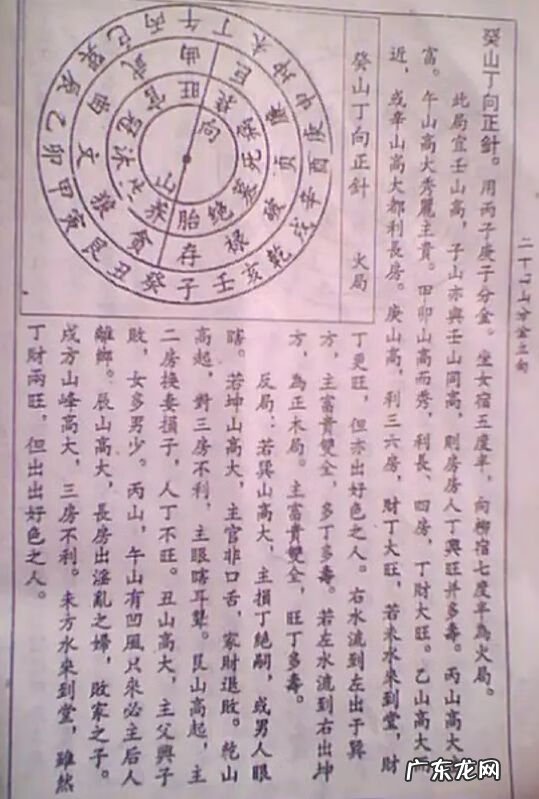 二十四山分金立向
癸山丁向正針。用丙子庚子分金。坐女宿五度半,向柳宿七度半為火局。
此局宜壬山高,子山亦與壬山同高,則房房人丁興旺并多壽。丙山高大
富。午山高大秀麗主貴。甲卯山高而秀,利長、四房,丁財大旺。乙山高大
近,或辛山高大都利長房。庚山高,利三六房,財丁大旺,若未水來到堂,財
癸山丁向正針 火局
壬子癸丑艮寅甲卯乙辰巽巳丙午丁未坤申庚酉辛戌乾亥
祿存貪狼文曲武曲巨廉貞破
胎養生沐冠官旺衰病死墓絕
向
山
丁更旺,但亦出好色之人。右水流到左出于巽
方,主富貴雙全,多丁多壽。若左水流到右出坤
方,為正木局。主富貴雙全,旺丁多壽。
反局:若巽山高大,主損丁絕嗣,或男人眼
瞎。若坤山高大,主官非口舌,家財退敗。乾山
高起,對三房不利,主眼瞎耳聾。艮山高起,主
二房換妻損子,人丁不旺。丑山高大,主父興子
敗,女多男少。丙山,午山有凹風只來必主后人
離鄉。辰山高大,長房出淫亂之婦,敗家之子。
戌方山峰高大,三房不利。未方水來到堂,雖然
丁財兩旺,但出出好色之人。
广东龙网